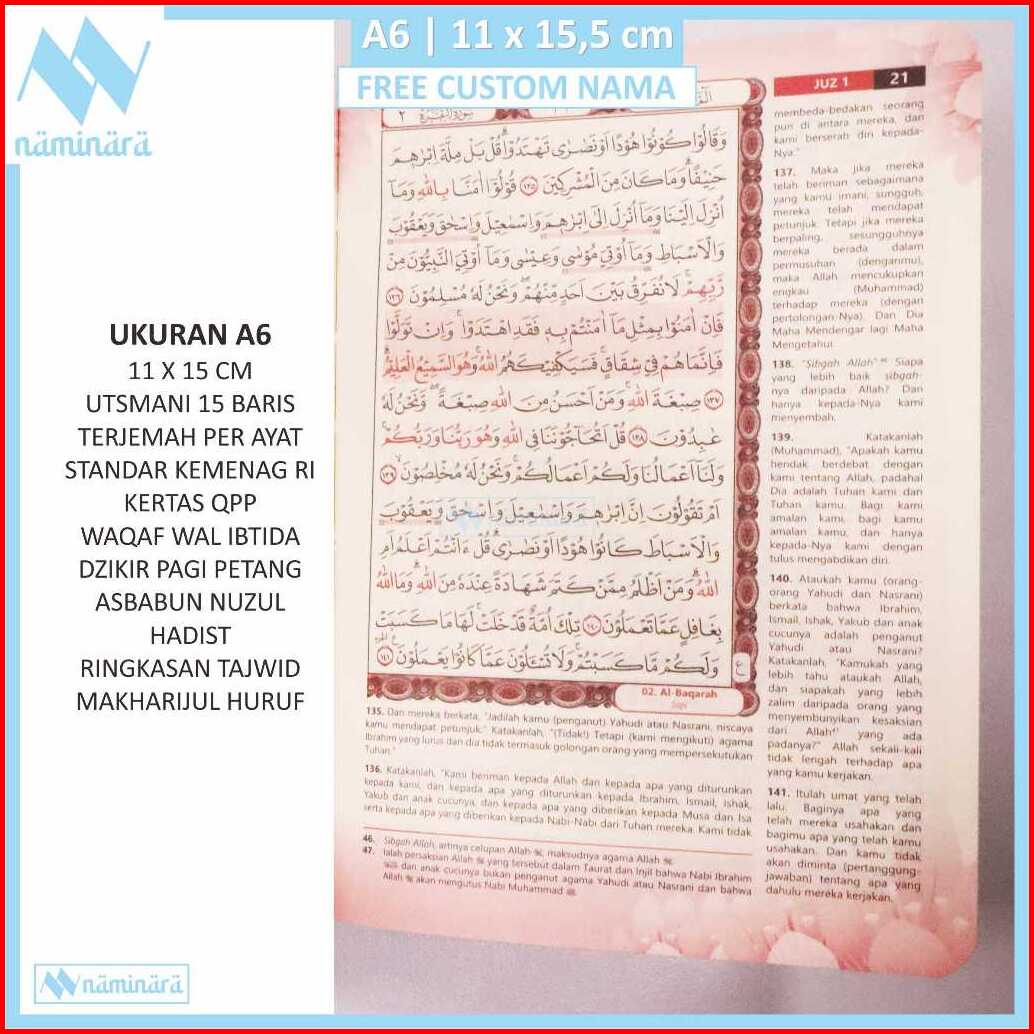 näminärä
A6 | 11 x 15,5 cm
FREE CUSTOM NAMA
UKURAN A6
11 X 15 CM
UTSMANI 15 BARIS
TERJEMAH PER AYAT
STANDAR KEMENAG RI
KERTAS QPP
WAQAF WAL IBTIDA
DZIKIR PAGI PETANG
ASBABUN NUZUL
HADIST
RINGKASAN TAJWID
MAKHARIJUL HURUF
näminärä
JUZ 1 21
وَقَالُوْا كُوْنُوْا هُوْدًا اَوْ نَصٰرٰى تَهْتَدُوْاۗ قُلْ بَلْ مِلَّةَ اِبْرٰهٖمَ
حَنِيْفًاۗ وَمَا كَانَ مِنَ الْمُشْرِكِيْنَ ١٣٥ قُوْلُوْٓا اٰمَنَّا بِاللّٰهِ وَمَآ
اُنْزِلَ اِلَيْنَا وَمَآ اُنْزِلَ اِلٰٓى اِبْرٰهٖمَ وَاِسْمٰعِيْلَ وَاِسْحٰقَ وَيَعْقُوْبَ
وَالْاَسْبَاطِ وَمَآ اُوْتِيَ مُوْسٰى وَعِيْسٰى وَمَآ اُوْتِيَ النَّبِيُّوْنَ مِنْ
رَّبِّهِمْۚ لَا نُفَرِّقُ بَيْنَ اَحَدٍ مِّنْهُمْۖ وَنَحْنُ لَهٗ مُسْلِمُوْنَ ١٣٦
فَاِنْ اٰمَنُوْا بِمِثْلِ مَآ اٰمَنْتُمْ بِهٖ فَقَدِ اهْتَدَوْاۚ وَاِنْ تَوَلَّوْا
فَاِنَّمَا هُمْ فِيْ شِقَاقٍۚ فَسَيَكْفِيْكَهُمُ اللّٰهُۚ وَهُوَ السَّمِيْعُ الْعَلِيْمُۗ
١٣٧ صِبْغَةَ اللّٰهِۚ وَمَنْ اَحْسَنُ مِنَ اللّٰهِ صِبْغَةًۖ وَّنَحْنُ لَهٗ
عٰبِدُوْنَ ١٣٨ قُلْ اَتُحَاۤجُّوْنَنَا فِى اللّٰهِ وَهُوَ رَبُّنَا وَرَبُّكُمْۚ
وَلَنَآ اَعْمَالُنَا وَلَكُمْ اَعْمَالُكُمْۚ وَنَحْنُ لَهٗ مُخْلِصُوْنَ ١٣٩
اَمْ تَقُوْلُوْنَ اِنَّ اِبْرٰهٖمَ وَاِسْمٰعِيْلَ وَاِسْحٰقَ وَيَعْقُوْبَ
وَالْاَسْبَاطَ كَانُوْا هُوْدًا اَوْ نَصٰرٰىۗ قُلْ ءَاَنْتُمْ اَعْلَمُ اَمِ
اللّٰهُۗ وَمَنْ اَظْلَمُ مِمَّنْ كَتَمَ شَهَادَةً عِنْدَهٗ مِنَ اللّٰهِۗ وَمَا اللّٰهُ
بِغَافِلٍ عَمَّا تَعْمَلُوْنَ ١٤٠ تِلْكَ اُمَّةٌ قَدْ خَلَتْۚ لَهَا مَا كَسَبَتْ
وَلَكُمْ مَّا كَسَبْتُمْۚ وَلَا تُسْـَٔلُوْنَ عَمَّا كَانُوْا يَعْمَلُوْنَ ١٤١
02. Al-Baqarah
Sapi
135. Dan mereka berkata, "Jadilah kamu (penganut) Yahudi atau Nasrani, niscaya
kamu mendapat petunjuk." Katakanlah, "(Tidak!) Tetapi (kami mengikuti) agama
Ibrahim yang lurus dan dia tidak termasuk golongan orang yang mempersekutukan
Tuhan."
136. Katakanlah, "Kami beriman kepada Allah dan kepada apa yang diturunkan
kepada kami, dan kepada apa yang diturunkan kepada Ibrahim, Ismail, Ishak,
Yakub dan anak cucunya, dan kepada apa yang diberikan kepada Musa dan Isa
serta kepada apa yang diberikan kepada Nabi-Nabi dari Tuhan mereka. Kami tidak
membeda-bedakan seorang
pun di antara mereka, dan
kami berserah diri kepada-
Nya."
137. Maka jika mereka
telah beriman sebagaimana
yang kamu imani, sungguh,
mereka telah mendapat
petunjuk. Tetapi jika mereka
berpaling, sesungguhnya
mereka berada dalam
permusuhan (denganmu),
maka Allah mencukupkan
engkau (Muhammad)
terhadap mereka (dengan
pertolongan-Nya). Dan Dia
Maha Mendengar lagi Maha
Mengetahui.
138. "Sibgah Allah" 46 Siapa
yang lebih baik sibgah-
nya daripada Allah? Dan
hanya kepada-Nya kami
menyembah.
139. Katakanlah
(Muhammad), "Apakah kamu
hendak berdebat dengan
kami tentang Allah, padahal
Dia adalah Tuhan kami dan
Tuhan kamu. Bagi kami
amalan kami, bagi kamu
amalan kamu, dan hanya
kepada-Nya kami dengan
tulus mengabdikan diri.
140. Ataukah kamu (orang-
orang Yahudi dan Nasrani)
berkata bahwa Ibrahim,
Ismail, Ishak, Yakub dan anak
cucunya adalah penganut
Yahudi atau Nasrani?
Katakanlah, "Kamukah yang
lebih tahu ataukah Allah,
dan siapakah yang lebih
zalim daripada orang yang
menyembunyikan kesaksian
dari Allah⁴⁷ yang ada
padanya?" Allah sekali-kali
tidak lengah terhadap apa
yang kamu kerjakan.
141. Itulah umat yang telah
lalu. Baginya apa yang
telah mereka usahakan dan
bagimu apa yang telah kamu
usahakan. Dan kamu tidak
akan diminta (pertanggung-
jawaban) tentang apa yang
dahulu mereka kerjakan.
46. Sibgah Allah, artinya celupan Allah ﷻ, maksudnya agama Allah ﷻ.
47. Ialah persaksian Allah ﷻ yang tersebut dalam Taurat dan Injil bahwa Nabi Ibrahim
dan anak cucunya bukan penganut agama Yahudi atau Nasrani dan bahwa
Allah ﷻ akan mengutus Nabi Muhammad ﷺ.